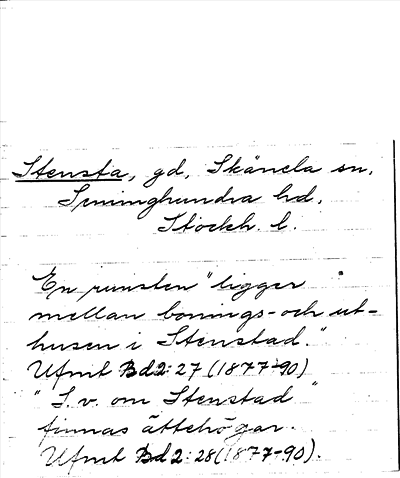 Stensta, gd, Skånela sn,
Seminghundra hd,
Stockh. l.
En runsten "ligger
mellan bonings- och ut-
husen i Stenstad."
Ufmt Bd 2: 27 (1877-90)
"S. v. om Stenstad
finnas ättehögar."
Ufmt Bd 2: 28 (1877-90).